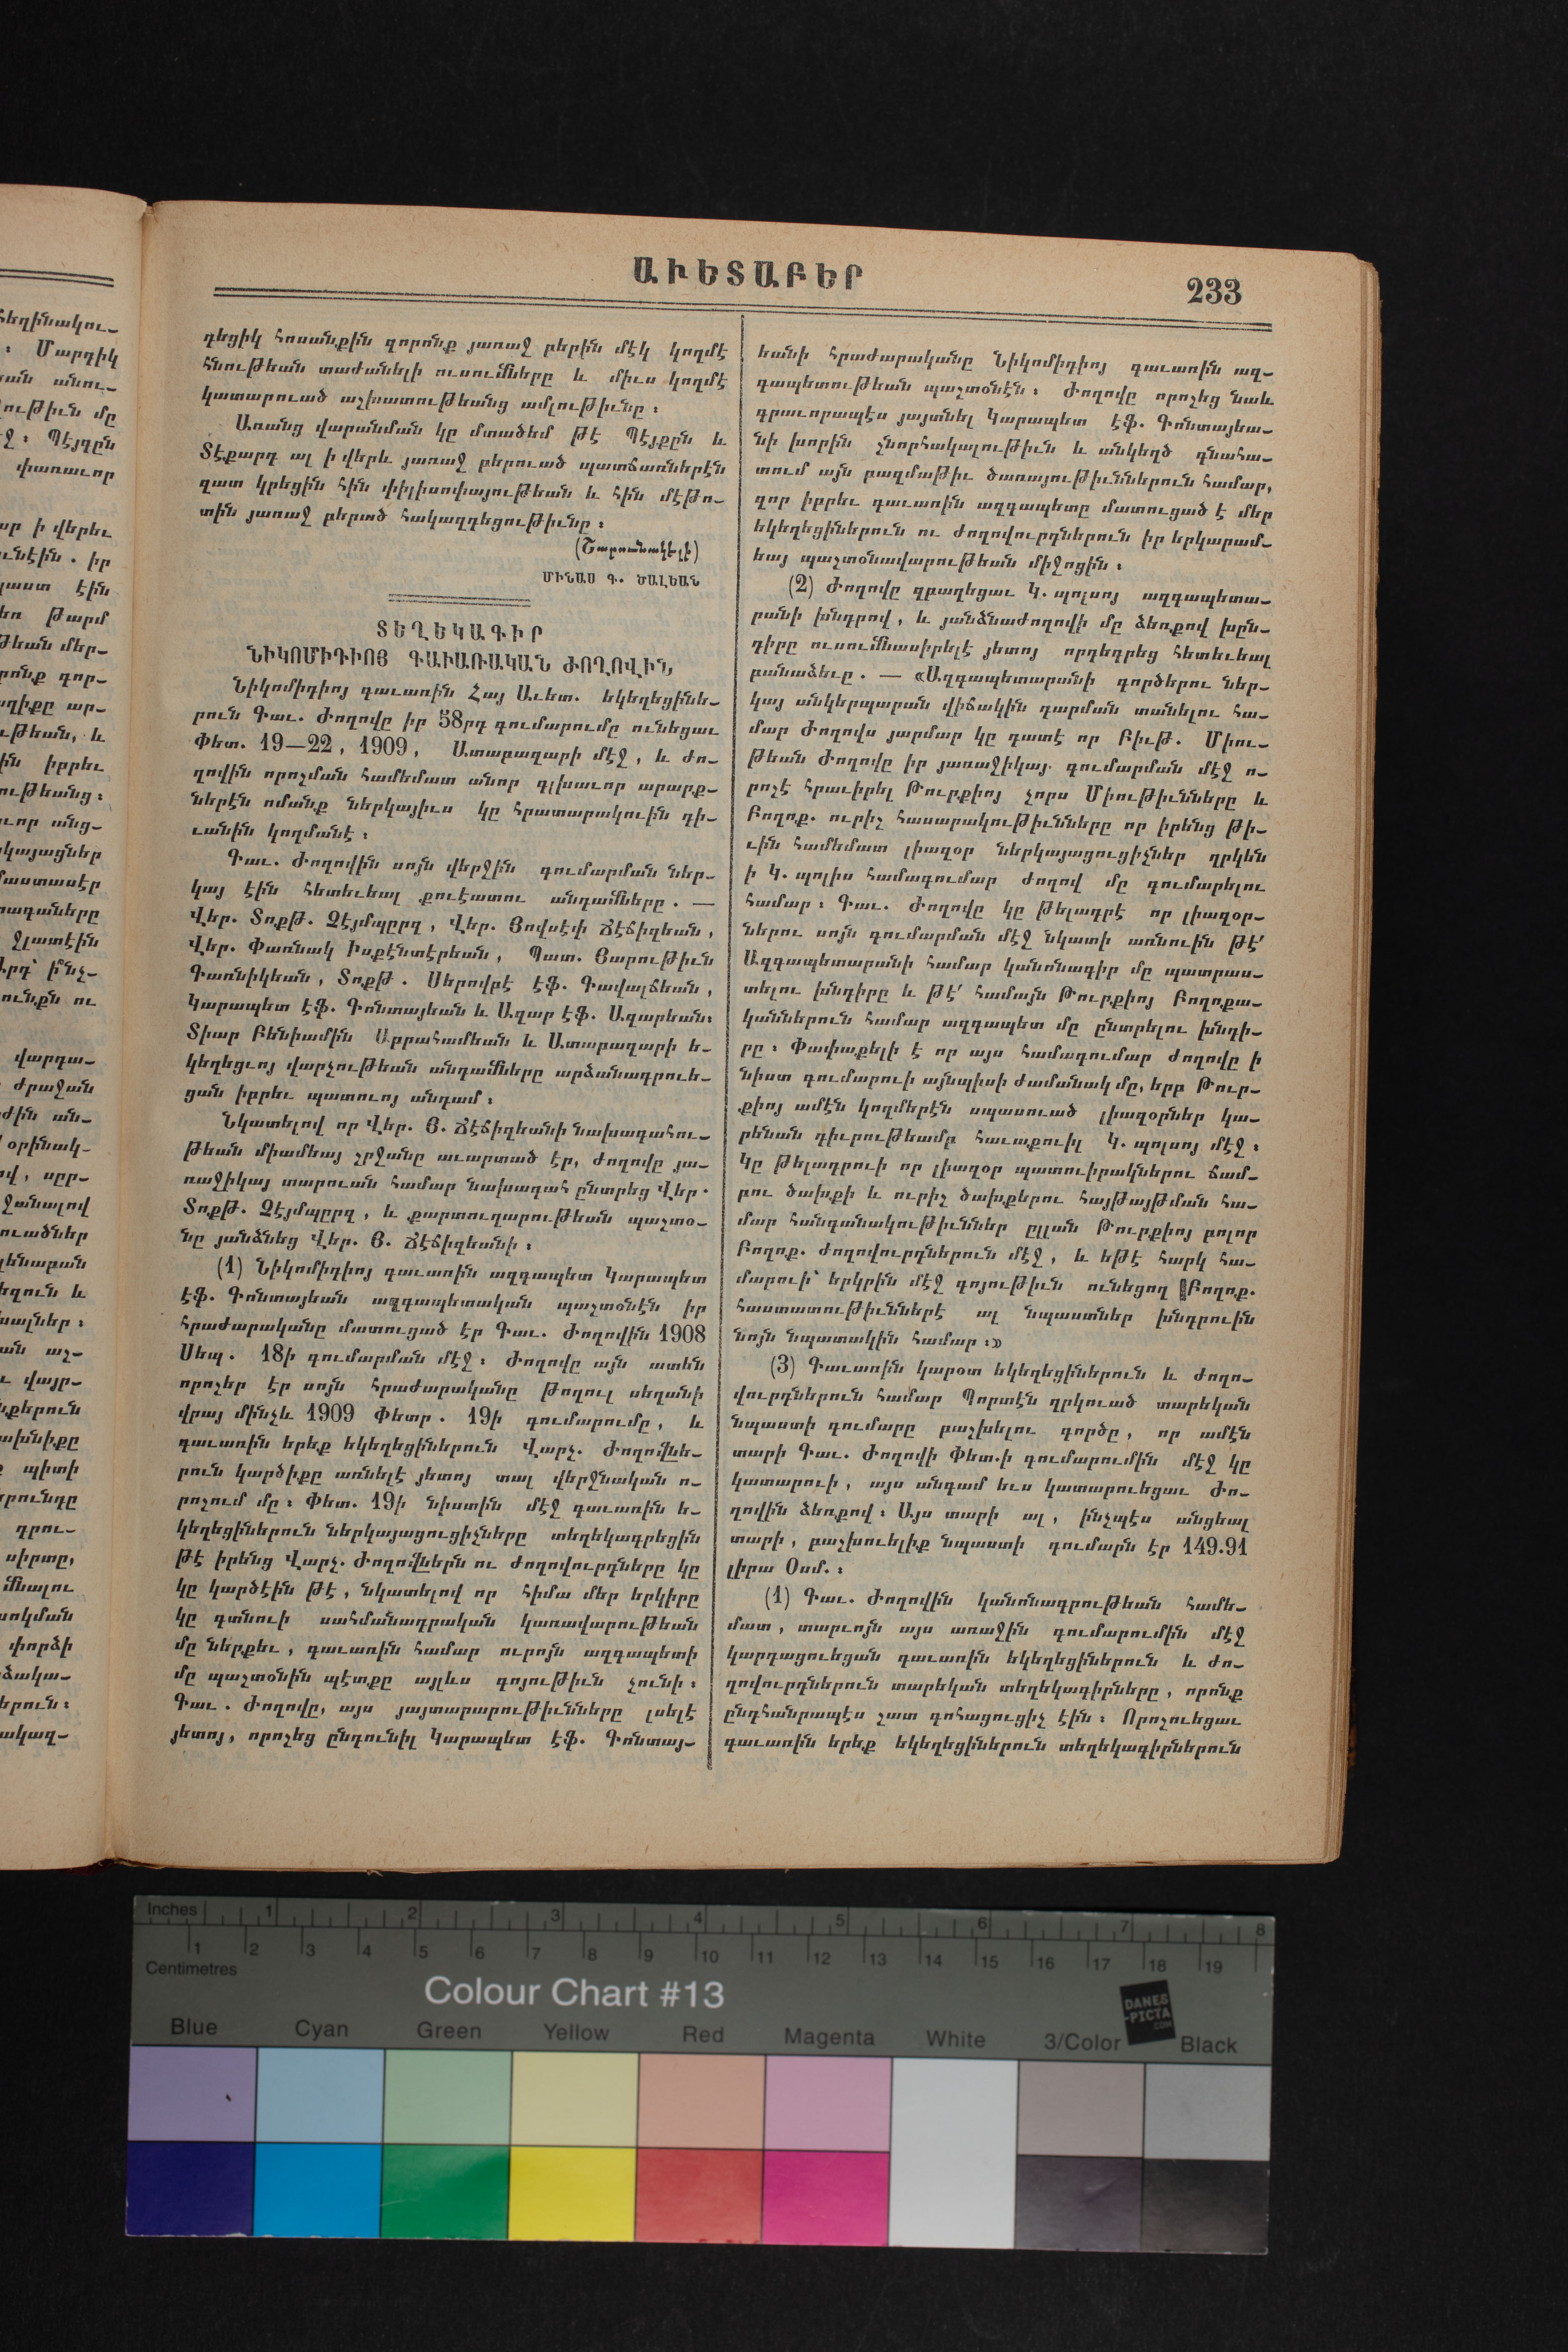 ԱՒԵՏԱԲԵՐ
233
դեցիկ հոսանքին զորոնք յառաջ բերին մէկ կողմէ
հնութեան տաժանելի ուսումները և միւս կողմէ
կատարուած աշխատութեանց ամլութիւնը :
Առանց վարանման կը մտածեմ թէ Պէյքըն և
Տէքարդ ալ ի վերև յառաջ բերուած պատճառներէն
զատ կրեցին հին փիլիսոփայութեան և հին մէթո-
տին յառաջ բերած հակազդեցութիւնը :
(Շարունակելի)
ՄԻՆԱՍ Գ. ԵԱԼԵԱՆ
ՏԵՂԵԿԱԳԻՐ
ՆԻԿՈՄԻԴԻՈՅ ԳԱՒԱՌԱԿԱՆ ԺՈՂՈՎԻՆ
Նիկոմիդիոյ գաւառին Հայ Աւետ. եկեղեցինե-
րուն Գաւ. Ժողովը իր 58րդ գումարումը ունեցաւ
Փետ. 19—22, 1909, Ատաբազարի մէջ, և ժո-
ղովին որոշման համեմատ անոր գլխաւոր արարք-
ներէն ոմանք ներկայիւս կը հրատարակուին դի-
ւանին կողմանէ :
Գաւ. Ժողովին սոյն վերջին գումարման ներ-
կայ էին հետեւեալ քուէատու անդամները. —
Վեր. Տոքթ. Չէյմպըրզ, Վեր. Յովսէփ Ճէճիզեան,
Վեր. Փառնակ Իսքէնտէրեան, Պատ. Յարութիւն
Գառնիկեան, Տոքթ. Սերովբէ էֆ. Գավալճեան,
Կարապետ էֆ. Գոնտայեան և Ազար էֆ. Ազարեան:
Տիար Բենիամին Աբրահամեան և Ատաբազարի ե-
կեղեցւոյ վարչութեան անդամները արձանագրուե-
ցան իբրեւ պատուոյ անդամ :
Նկատելով որ Վեր. Յ. Ճէճիզեանի նախագահու-
թեան միամեայ շրջանը աւարտած էր, ժողովը յա-
ռաջիկայ տարուան համար նախագահ ընտրեց Վեր.
Տոքթ. Չէյմպըրզ, և քարտուղարութեան պաշտօ-
նը յանձնեց Վեր. Յ. Ճէճիզեանի :
(1) Նիկոմիդիոյ գաւառին ազգապետ Կարապետ
էֆ. Գոնտայեան ազգապետական պաշտօնէն իր
հրաժարականը մատուցած էր Գաւ. Ժողովին 1908
Սեպ. 18ի գումարման մէջ : Ժողովը այն ատեն
որոշեր էր սոյն հրաժարականը թողուլ սեղանի
վրայ մինչև 1909 Փետր. 19ի գումարումը, և
գաւառին երեք եկեղեցիներուն Վարչ. Ժողովնե-
րուն կարծիքը առնելէ յետոյ տալ վերջնական ո-
րոշում մը : Փետ. 19ի նիստին մէջ գաւառին ե-
կեղեցիներուն ներկայացուցիչները տեղեկագրեցին
թէ իրենց Վարչ. Ժողովներն ու ժողովուրդները կը
կը կարծէին թէ, նկատելով որ հիմա մեր երկիրը
կը գտնուի սահմանադրական կառավարութեան
մը ներքեւ, գաւառին համար ուրոյն ազգապետի
մը պաշտօնին պէտքը այլևս գոյութիւն չունի :
Գաւ. Ժողովը, այս յայտարարութիւնները լսելէ
յետոյ, որոշեց ընդունիլ Կարապետ էֆ. Գոնտայ-
եանի հրաժարականը Նիկոմիդիոյ գաւառին ազ-
գապետութեան պաշտօնէն : Ժողովը որոշեց նաև
գրաւորապէս յայտնել Կարապետ էֆ. Գոնտայեա-
նի խորին շնորհակալութիւն և անկեղծ գնահա-
տում այն բազմաթիւ ծառայութիւններուն համար,
զոր իբրեւ գաւառին ազգապետը մատուցած է մեր
եկեղեցիներուն ու ժողովուրդներուն իր երկարամ-
եայ պաշտօնավարութեան միջոցին :
(2) Ժողովը զբաղեցաւ Կ. պոլսոյ ազգապետա-
րանի խնդրով, և յանձնաժողովի մը ձեռքով խըն-
դիրը ուսումնասիրելէ յետոյ որդեգրեց հետեւեալ
բանաձեւը. — «Ազգապետարանի գործերու ներ-
կայ անկերպարան վիճակին դարման տանելու հա-
մար Ժողովս յարմար կը դատէ որ Բիւթ. Միու-
թեան Ժողովը իր յառաջիկայ գումարման մէջ ո-
րոշէ հրաւիրել Թուրքիոյ չորս Միութիւնները և
Բողոք. ուրիշ հասարակութիւնները որ իրենց թի-
ւին համեմատ լիազօր ներկայացուցիչներ ղրկեն
ի Կ. պոլիս համագումար ժողով մը գումարելու
համար : Գաւ. Ժողովը կը թելադրէ որ լիազօր-
ներու սոյն գումարման մէջ նկատի առնուին թէ՛
Ազգապետարանի համար կանոնագիր մը պատրաս-
տելու խնդիրը և թէ՛ համայն Թուրքիոյ Բողոքա-
կաններուն համար ազգապետ մը ընտրելու խնդի-
րը : Փափաքելի է որ այս համագումար ժողովը ի
նիստ գումարուի այնպիսի ժամանակ մը, երբ Թուր-
քիոյ ամէն կողմերէն սպասուած լիազօրներ կա-
րենան դիւրութեամբ հաւաքուիլ Կ. պոլսոյ մէջ :
Կը թելադրուի որ լիազօր պատուիրակներու ճամ-
բու ծախքի և ուրիշ ծախքերու հայթայթման հա-
մար հանգանակութիւններ ըլլան Թուրքիոյ բոլոր
Բողոք. ժողովուրդներուն մէջ, և եթէ հարկ հա-
մարուի՝ երկրին մէջ գոյութիւն ունեցող Բողոք.
հաստատութիւններէ ալ նպաստներ խնդրուին
նոյն նպատակին համար :»
(3) Գաւառին կարօտ եկեղեցիներուն և ժողո-
վուրդներուն համար Պորտէն ղրկուած տարեկան
նպաստի գումարը բաշխելու գործը, որ ամէն
տարի Գաւ. Ժողովի Փետ.ի գումարումին մէջ կը
կատարուի, այս անգամ եւս կատարուեցաւ Ժո-
ղովին ձեռքով : Այս տարի ալ, ինչպէս անցեալ
տարի, բաշխուելիք նպաստի գումարն էր 149.91
լիրա Օսմ. :
(1) Գաւ. Ժողովին կանոնագրութեան համե-
մատ, տարւոյն այս առաջին գումարումին մէջ
կարդացուեցան գաւառին եկեղեցիներուն և ժո-
ղովուրդներուն տարեկան տեղեկագիրները, որոնք
ընդհանրապէս շատ գոհացուցիչ էին : Որոշուեցաւ
գաւառին երեք եկեղեցիներուն տեղեկագիրներուն
Inches 1 2 3 4 5 6 7 8
1 2 3 4 5 6 7 8 9 10 11 12 13 14 15 16 17 18 19
Centimetres
Colour Chart #13
DANES
-PICTA
.COM
Blue Cyan Green Yellow Red Magenta White 3/Color Black